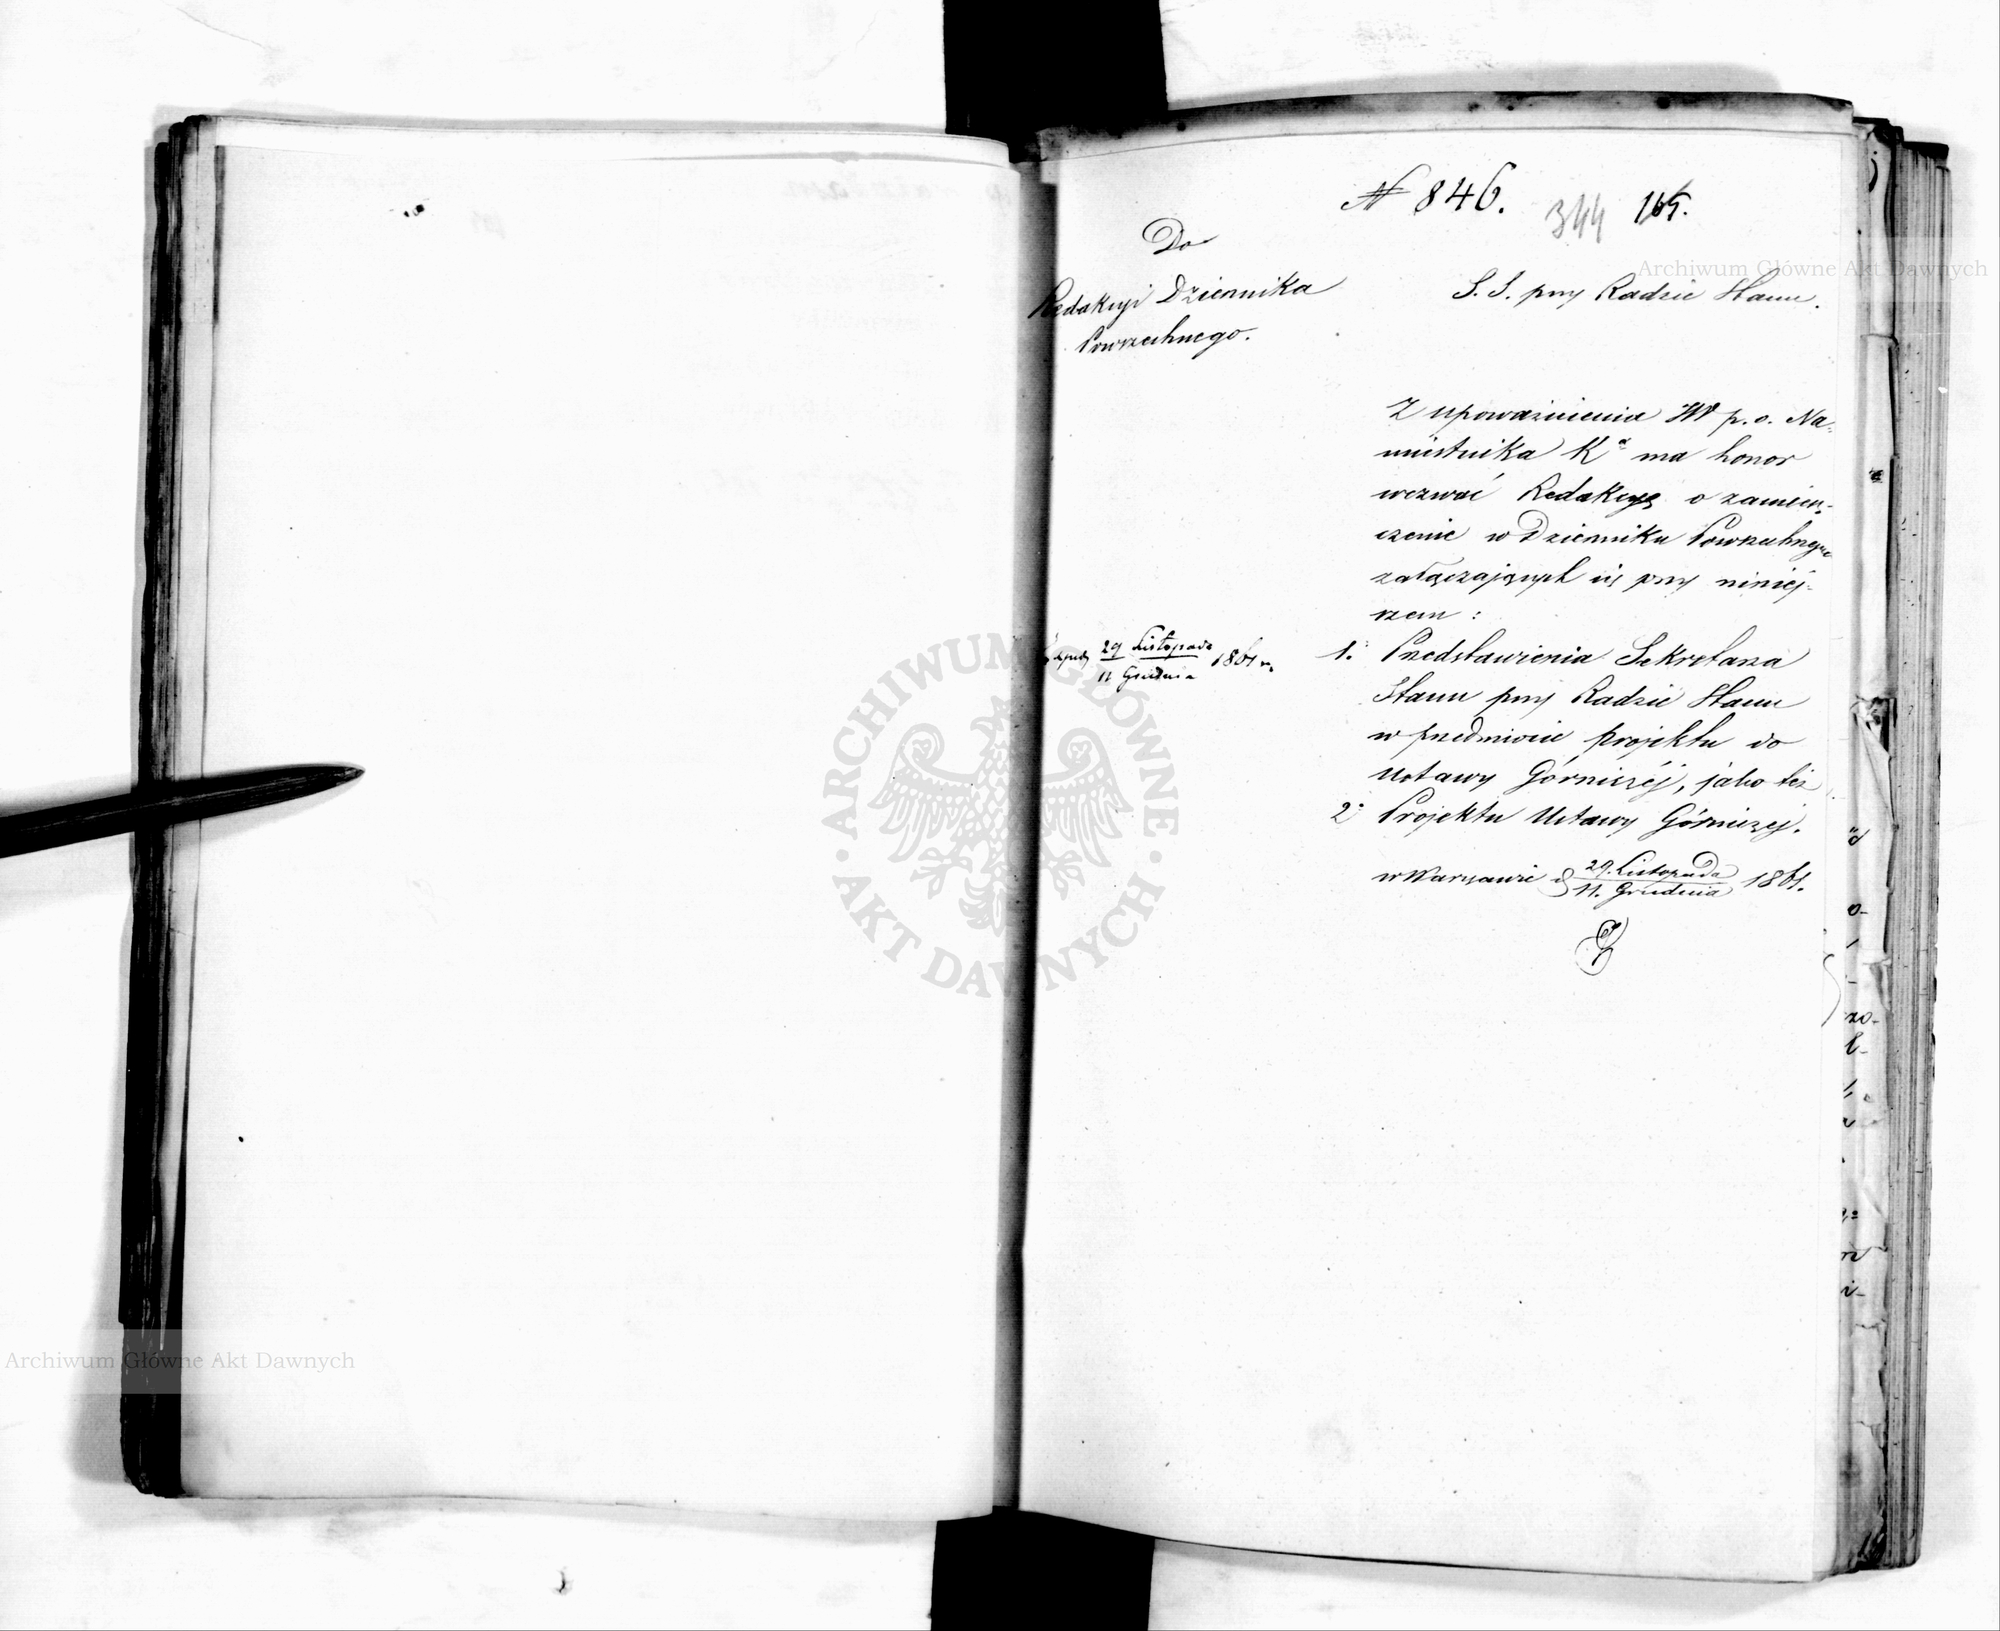 N 846.
344 165.
Do
Redakcyi Dziennika
Powszechnego.
S. S. przy Radzie Stanu.
Z upoważnienia JW p. o. Na-
miestnika Kª ma honor
wezwać Redakcyę o zamiesz-
czenie w Dzienniku Powszechnym
załączających się przy niniej-
szem :
29 Listopada
11 Grudnia 1861 r.
1. Przedstawienia Sekretarza
Stanu przy Radzie Stanu
w przedmiocie projektu do
Ustawy Górniczéj, jako też
2. Projektu Ustawy Górniczej.
w Warszawie d 29. Listopada
11. Grudnia 1861.
Archiwum Główne Akt Dawnych
ARCHIWUM GŁÓWNE
AKT DAWNYCH
Archiwum Główne Akt Dawnych